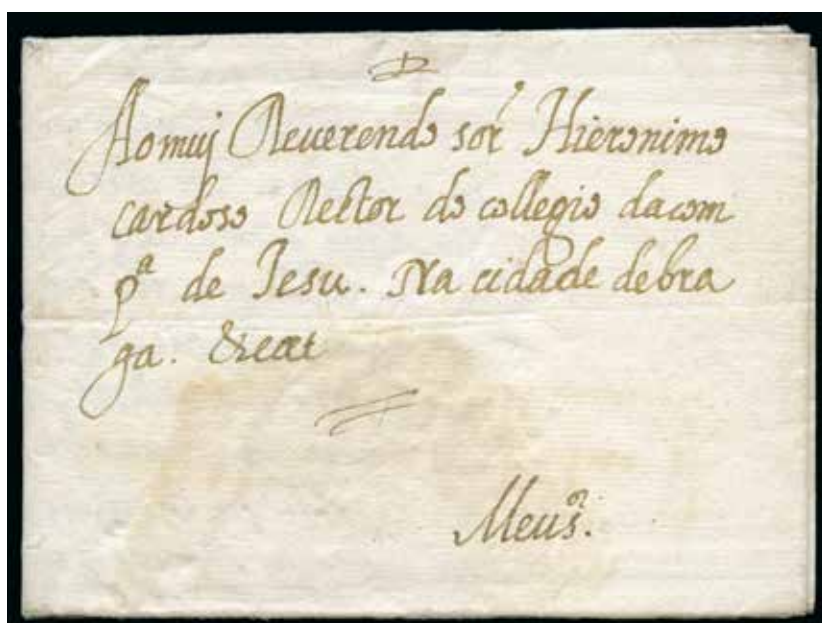 Aomuj Reuerendo sor Hieronimo
cardoso Rector do collegio dacom
pª de Jesu. Na cidade debra
ga.